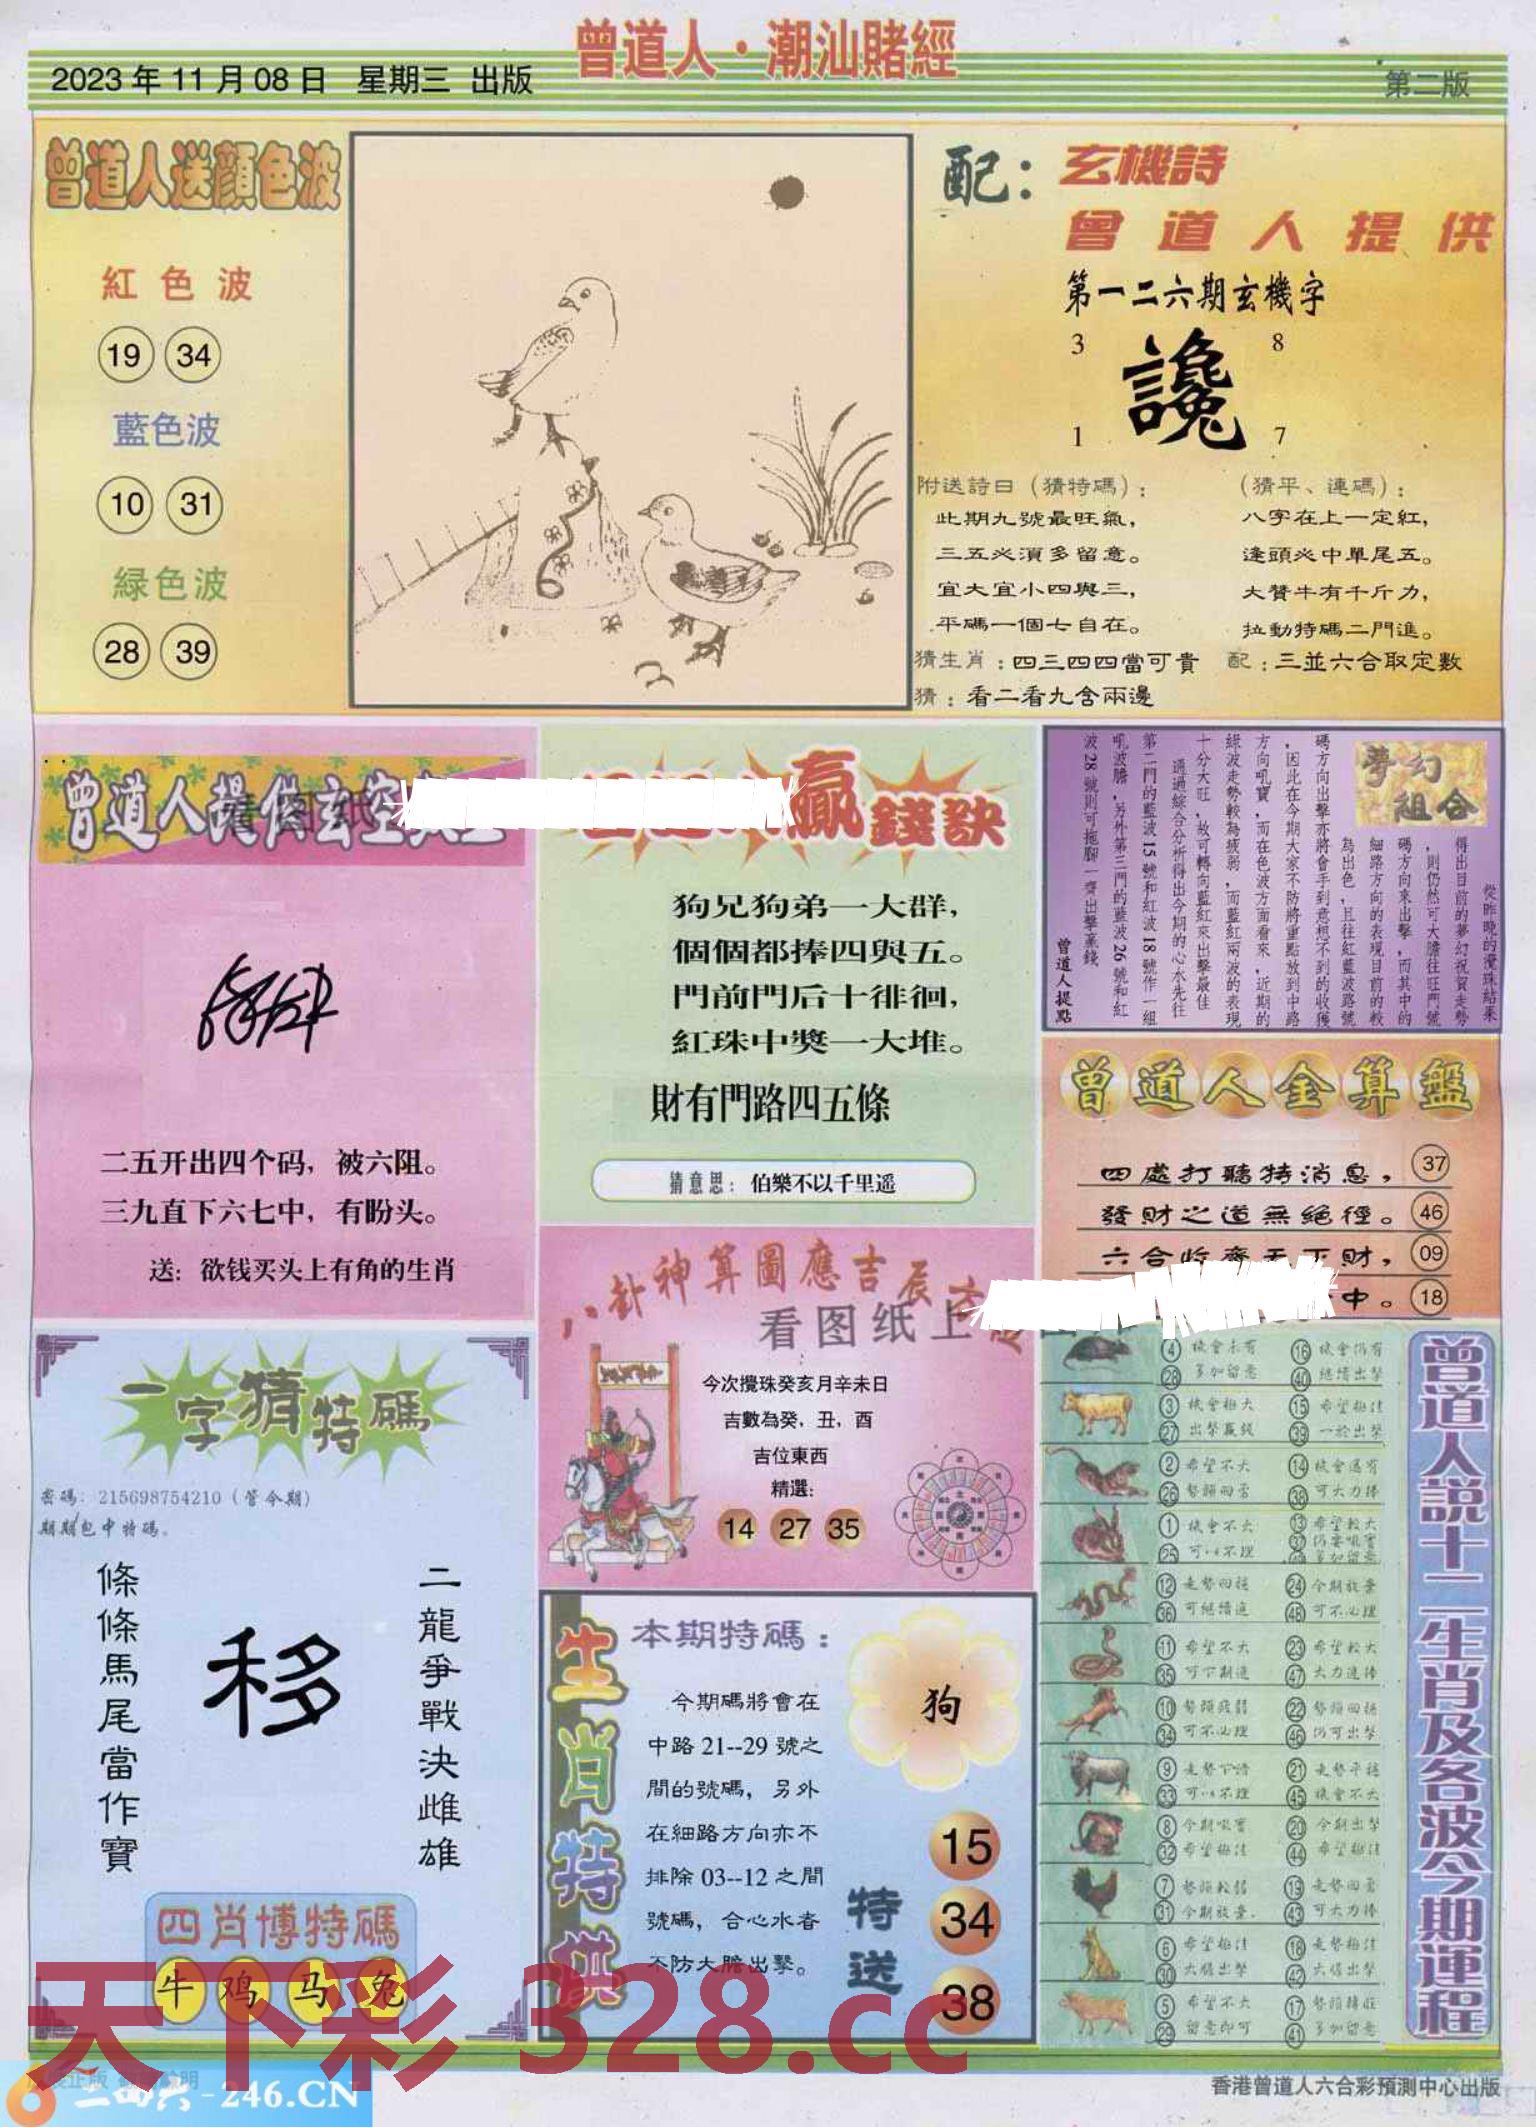 曾道人·潮汕賭經
2023年11月08日 星期三 出版
第二版
曾道人送顔色波
紅色波
19 34
藍色波
10 31
緑色波
28 39
配：玄機詩
曾道人提供
第一二六期玄機字
3 8
讒
1 7
附送詩曰（猜特碼）：
此期九號最旺氣，
三五必須多留意。
宜大宜小四與三，
平碼一個七自在。
（猜平、連碼）：
八字在上一定紅，
逢頭必中單尾五。
大聲牛有千斤力，
拉動特碼二門進。
猜生肖：四三四四當可貴 配：三並六合取定數
猜：看二看九含兩邊
曾道人提供玄空
二五开出四个码，被六阻。
三九直下六七中，有盼头。
送：欲钱买头上有角的生肖
贏錢訣
狗兄狗弟一大群，
個個都捧四與五。
門前門后十徘徊，
紅珠中獎一大堆。
財有門路四五條
猜意思：伯樂不以千里遥
夢幻組合
從昨晚的攪珠結果
得出目前的夢幻祝賀走勢
，則仍然可大膽往旺門號
碼方向來出擊，而其中的
細路方向的表現目前的較
為出色，且往紅藍波路號
碼方向出擊亦將會手到意想不到的收獲
，因此在今期大家不防將重點放到中路
方向吼寶，而在色波方面看來，近期的
綠波走勢較為疲弱，而藍紅兩波的表現
十分大旺，故可轉向藍紅來出擊最佳
通過綜合分析得出今期的心水先往
第二門的藍波15號和紅波18號作一組
吼波膽，另外第三門的藍波26號和紅
波28號則可拖腳一齊出擊贏錢
曾道人提點
曾道人金算盤
四處打聽特消息， 37
發財之道無絕徑。 46
六合收齊天下財， 09
中。 18
八卦神算圖應吉辰
看图纸上
今次攪珠癸亥月辛未日
吉數為癸，丑，酉
吉位東西
精選：
14 27 35
一字猜特碼
密碼：215698754210（管今期）
期期包中特碼。
二龍爭戰決雌雄
移
條條馬尾當作寶
四肖博特碼
牛 鸡 马 兔
生肖特供
本期特碼：
今期碼將會在
中路21--29號之
間的號碼，另外
在細路方向亦不
排除03--12之間
號碼，合心水者
不防大膽出擊。
狗
特送
15
34
38
曾道人説十二生肖及各波今期運程
4 機會未有 16 機會仍有
28 多加留意 40 繼續出擊
3 機會極大 15 希望極佳
27 出擊贏錢 39 一於出擊
2 希望不大 14 機會還有
26 勢頭回勇 38 可大力捧
1 機會不大 13 希望較大
25 可以不理 37 仍要吼實
49 多加留意
12 走勢回穩 24 今期放棄
36 可繼續追 48 可不必理
11 希望不大 23 希望較大
35 可下期追 47 大力追捧
10 勢頭疲弱 22 勢頭回穩
34 可不必理 46 仍可出擊
9 走勢下滑 21 走勢平穩
33 可以不理 45 機會不大
8 今期吼實 20 今期出擊
32 希望極佳 44 希望極佳
7 勢頭較弱 19 走勢回勇
31 今期放棄 43 可大力捧
6 希望極佳 18 走勢極佳
30 大膽出擊 42 大膽出擊
5 希望不大 17 勢頭轉旺
29 留意即可 41 多加留意
天下彩 328.cc
二四六-246.CN
香港曾道人六合彩預測中心出版